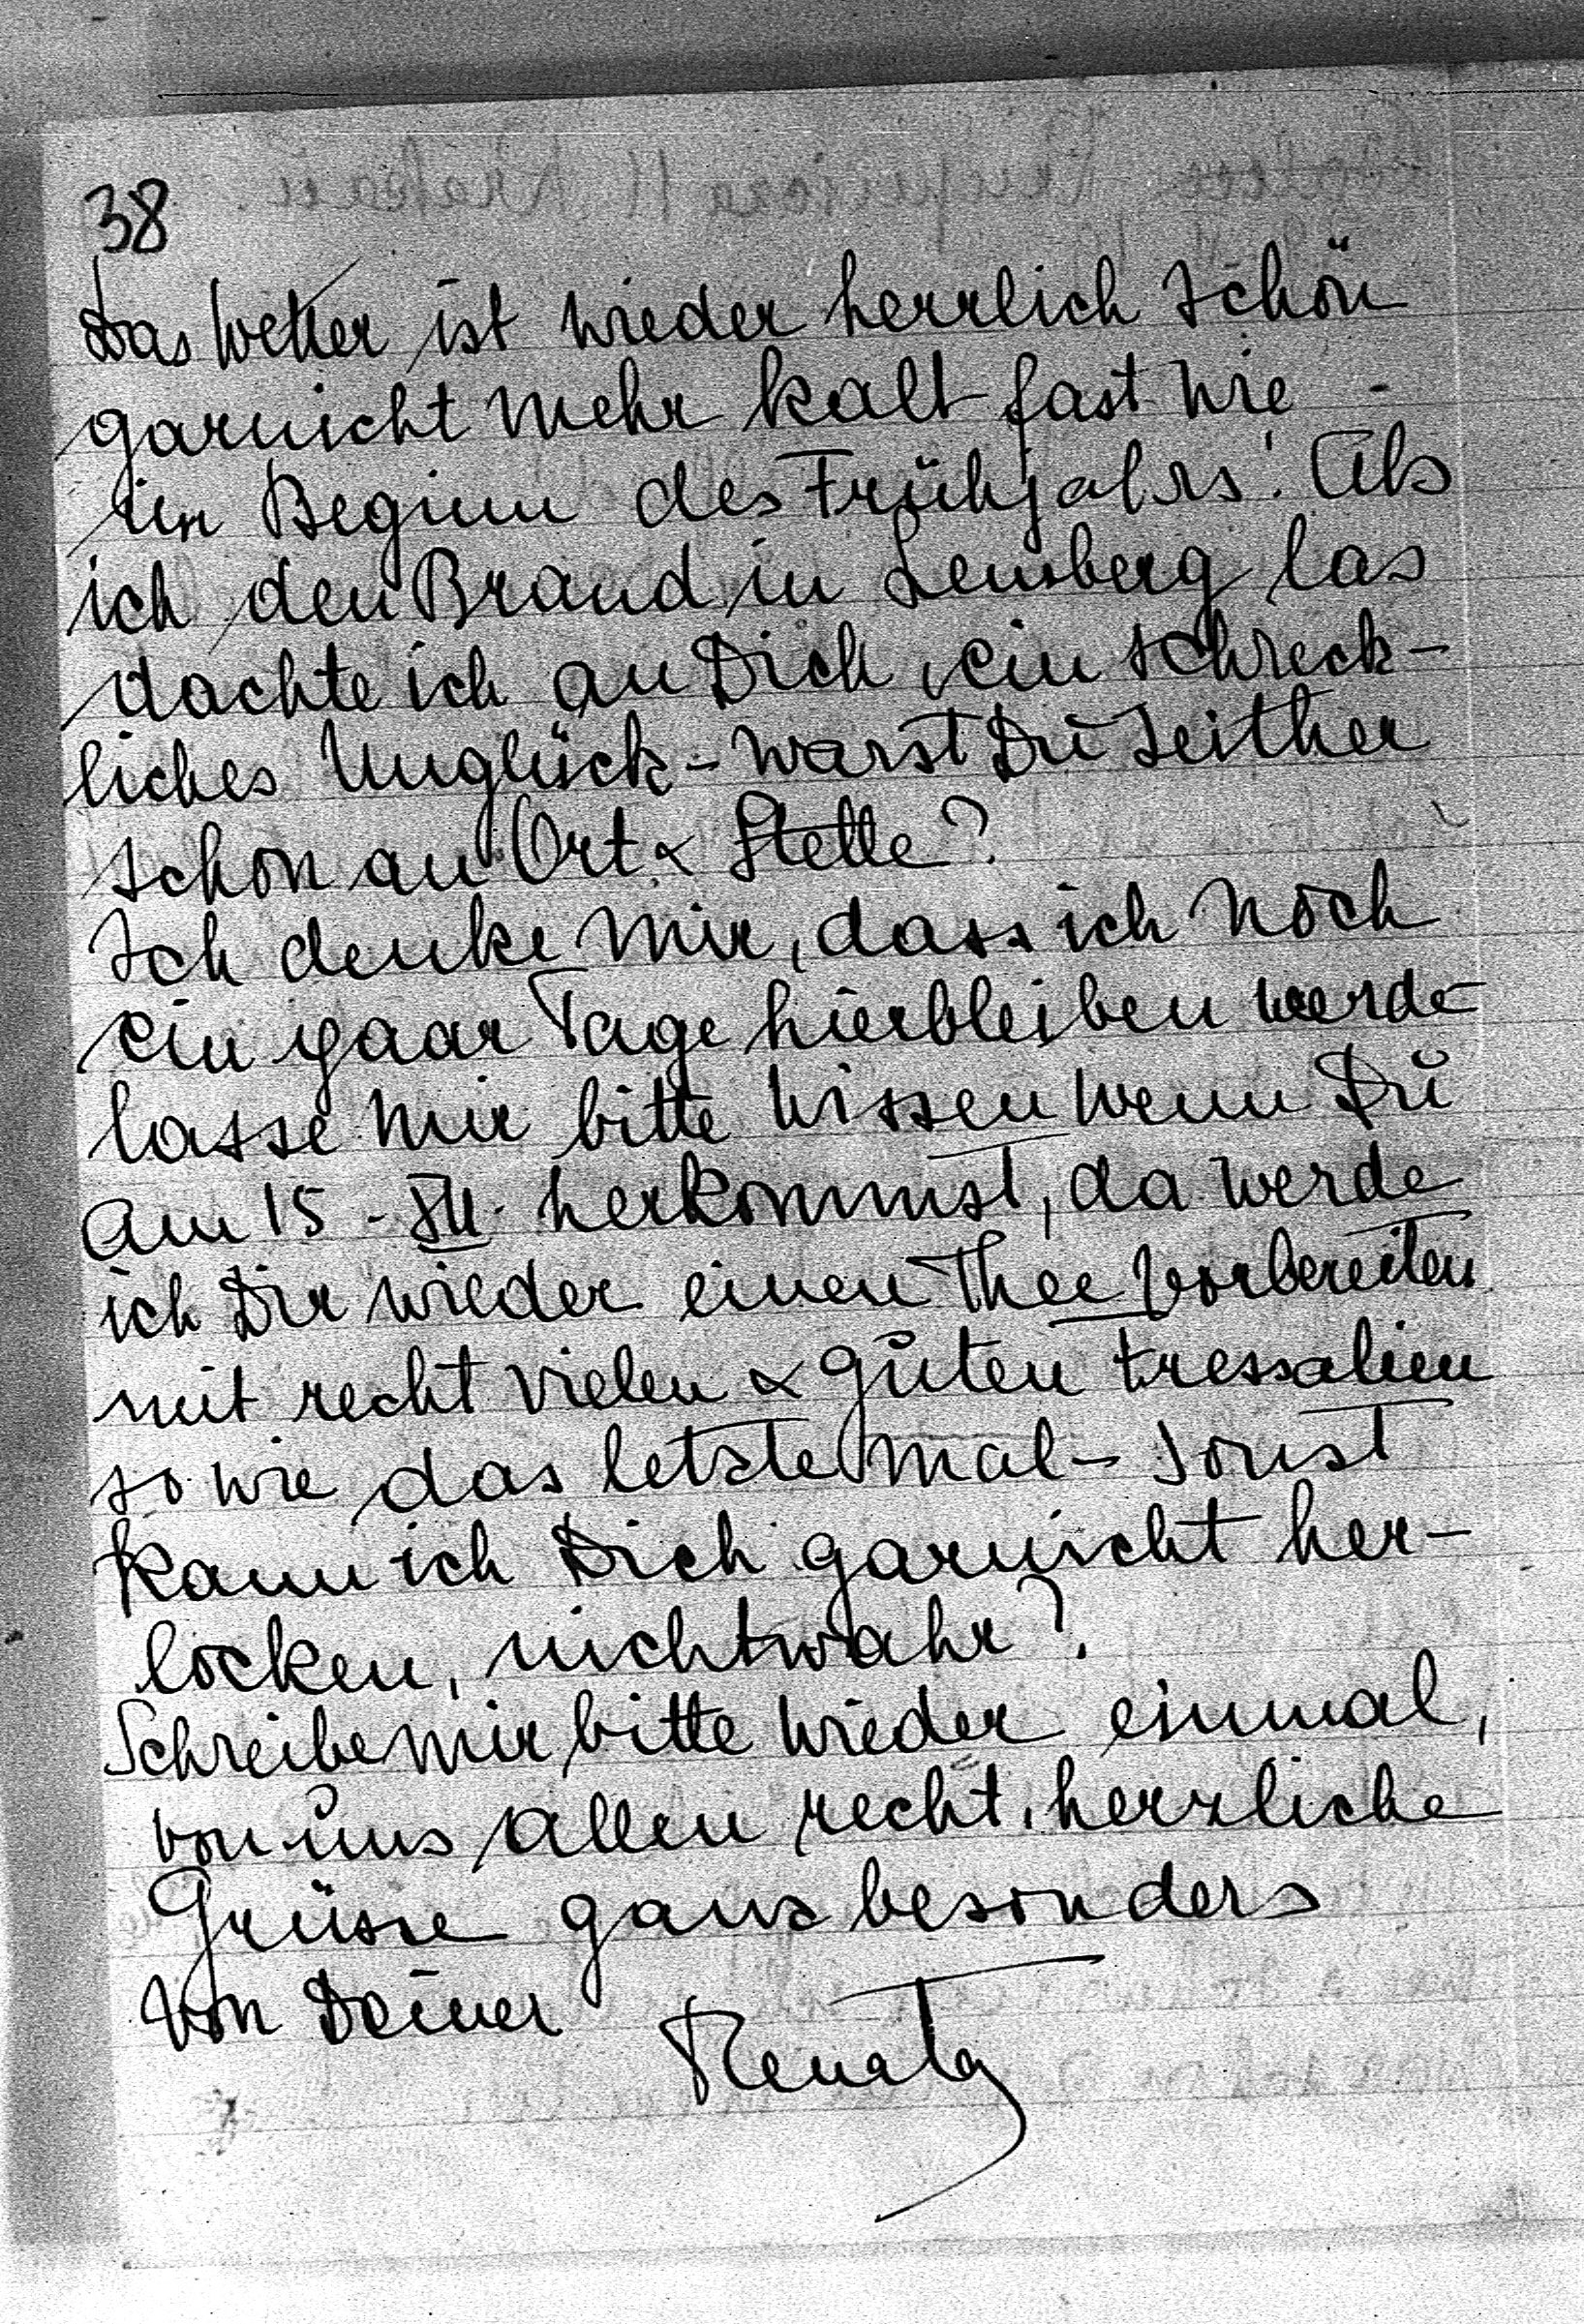 38
Das Wetter ist wieder herrlich schön
garnicht mehr kalt fast wie -
im Beginn des Frühjahrs! Als
ich den Brand in Lemberg las
dachte ich an Dich, ein schreck-
liches Unglück - warst Du seither
schon an Ort & Stelle?
Ich denke mir, dass ich noch
ein paar Tage hierbleiben werde
lasse mir bitte wissen wenn Du
am 15 - XII. herkommst, da werde
ich Dir wieder einen Thee vorbereiten
mit recht vielen & guten Fressalien
so wie das letzte mal - sonst
kann ich Dich garnicht her-
locken, nichtwahr?
Schreibe mir bitte wieder einmal,
von uns allen recht herzliche
Grüsse ganz besonders
von Deiner Renata